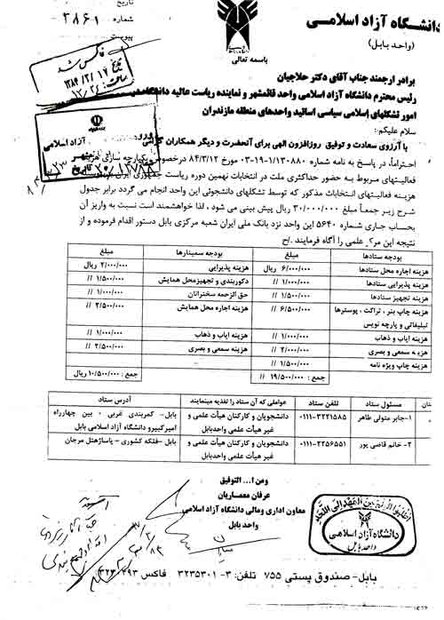 دانشگاه آزاد اسلامی
(واحد بابل)
تاریخ
شماره ۲۸۶۱
پیوست
باسمه تعالی
فاکس شد
برادر ارجمند جناب آقای دکتر حلاجیان
رئیس محترم دانشگاه آزاد اسلامی واحد قائمشهر و نماینده ریاست عالیه دانشگاه در
امور تشکلهای اسلامی سیاسی اساتید واحدهای منطقه مازندران
سلام علیکم:
با آرزوی سعادت و توفیق روزافزون الهی برای آنحضرت و دیگر همکاران گرامی
احتراماً، در پاسخ به نامه شماره ۱/۱۳۰۸۸۰-۱۹-۰۳ مورخ ۸۴/۳/۱۲ درخصوص
فعالیتهای مربوط به حضور حداکثری ملت در انتخابات نهمین دوره ریاست جمهوری
هزینه فعالیتهای انتخابات مذکور که توسط تشکلهای دانشجوئی این واحد انجام می گردد برابر جدول
شرح زیر جمعاً مبلغ ۳۰/۰۰۰/۰۰۰ ریال پیش بینی می شود ، لذا خواهشمند است نسبت به واریز آن
بحساب جاری شماره ۵۶۴۰ این واحد نزد بانک ملی ایران شعبه مرکزی بابل دستور اقدام فرموده و از
نتیجه این مرکز علمی را آگاه فرمایند.
بودجه ستادها بودجه سمینارها
هزینه اجاره محل ستادها ۶/۰۰۰/۰۰۰ ریال هزینه پذیرایی ۲/۰۰۰/۰۰۰ ریال
هزینه پذیرایی ۱/۰۰۰/۰۰۰ // دکوربندی و تجهیزمحل همایش ۱/۵۰۰/۰۰۰ //
هزینه تجهیز ستادها ۱/۵۰۰/۰۰۰ // حق الزحمه سخنرانان
هزینه چاپ بنر ، تراکت ، پوسترها ۶/۵۰۰/۰۰۰ // هزینه اجاره محل همایش ۲/۵۰۰/۰۰۰ //
تبلیغاتی و پارچه نویس
هزینه ایاب و ذهاب ۱/۰۰۰/۰۰۰ // هزینه ایاب و ذهاب ۱/۰۰۰/۰۰۰ //
هزینه سمعی و بصری ۲/۰۰۰/۰۰۰ // هزینه سمعی و بصری ۲/۵۰۰/۰۰۰ //
هزینه چاپ ویژه نامه ۱/۵۰۰/۰۰۰ //
جمع : ۱۹/۵۰۰/۰۰۰ // جمع : ۱۰/۵۰۰/۰۰۰ ریال
مسئول ستاد تلفن ستاد عواملی که آن ستاد را تغذیه مینمایند آدرس ستاد
۱-جابر متولی طاهر ۰۱۱۱-۳۲۲۱۵۸۵ دانشجویان و کارکنان هیأت علمی و غیر هیأت علمی واحدبابل بابل- کمربندی غربی ، بین چهارراه امیرکبیرو دانشگاه آزاد اسلامی بابل
۲- خانم قاضی پور ۰۱۱۱-۲۲۵۶۵۵۱ دانشجویان و کارکنان هیأت علمی و غیر هیأت علمی واحدبابل بابل -فلکه کشوری - پاساژهتل مرجان
ومن ا... التوفیق
عرفان معماریان
معاون اداری ومالی دانشگاه آزاد اسلامی
واحد بابل
دانشگاه آزاد اسلامی
واحد بابل
بابل- صندوق پستی ۷۵۵ تلفن: ۳- ۳۲۳۵۳۰۱ فاکس ۳۲۳۰۴۹۳